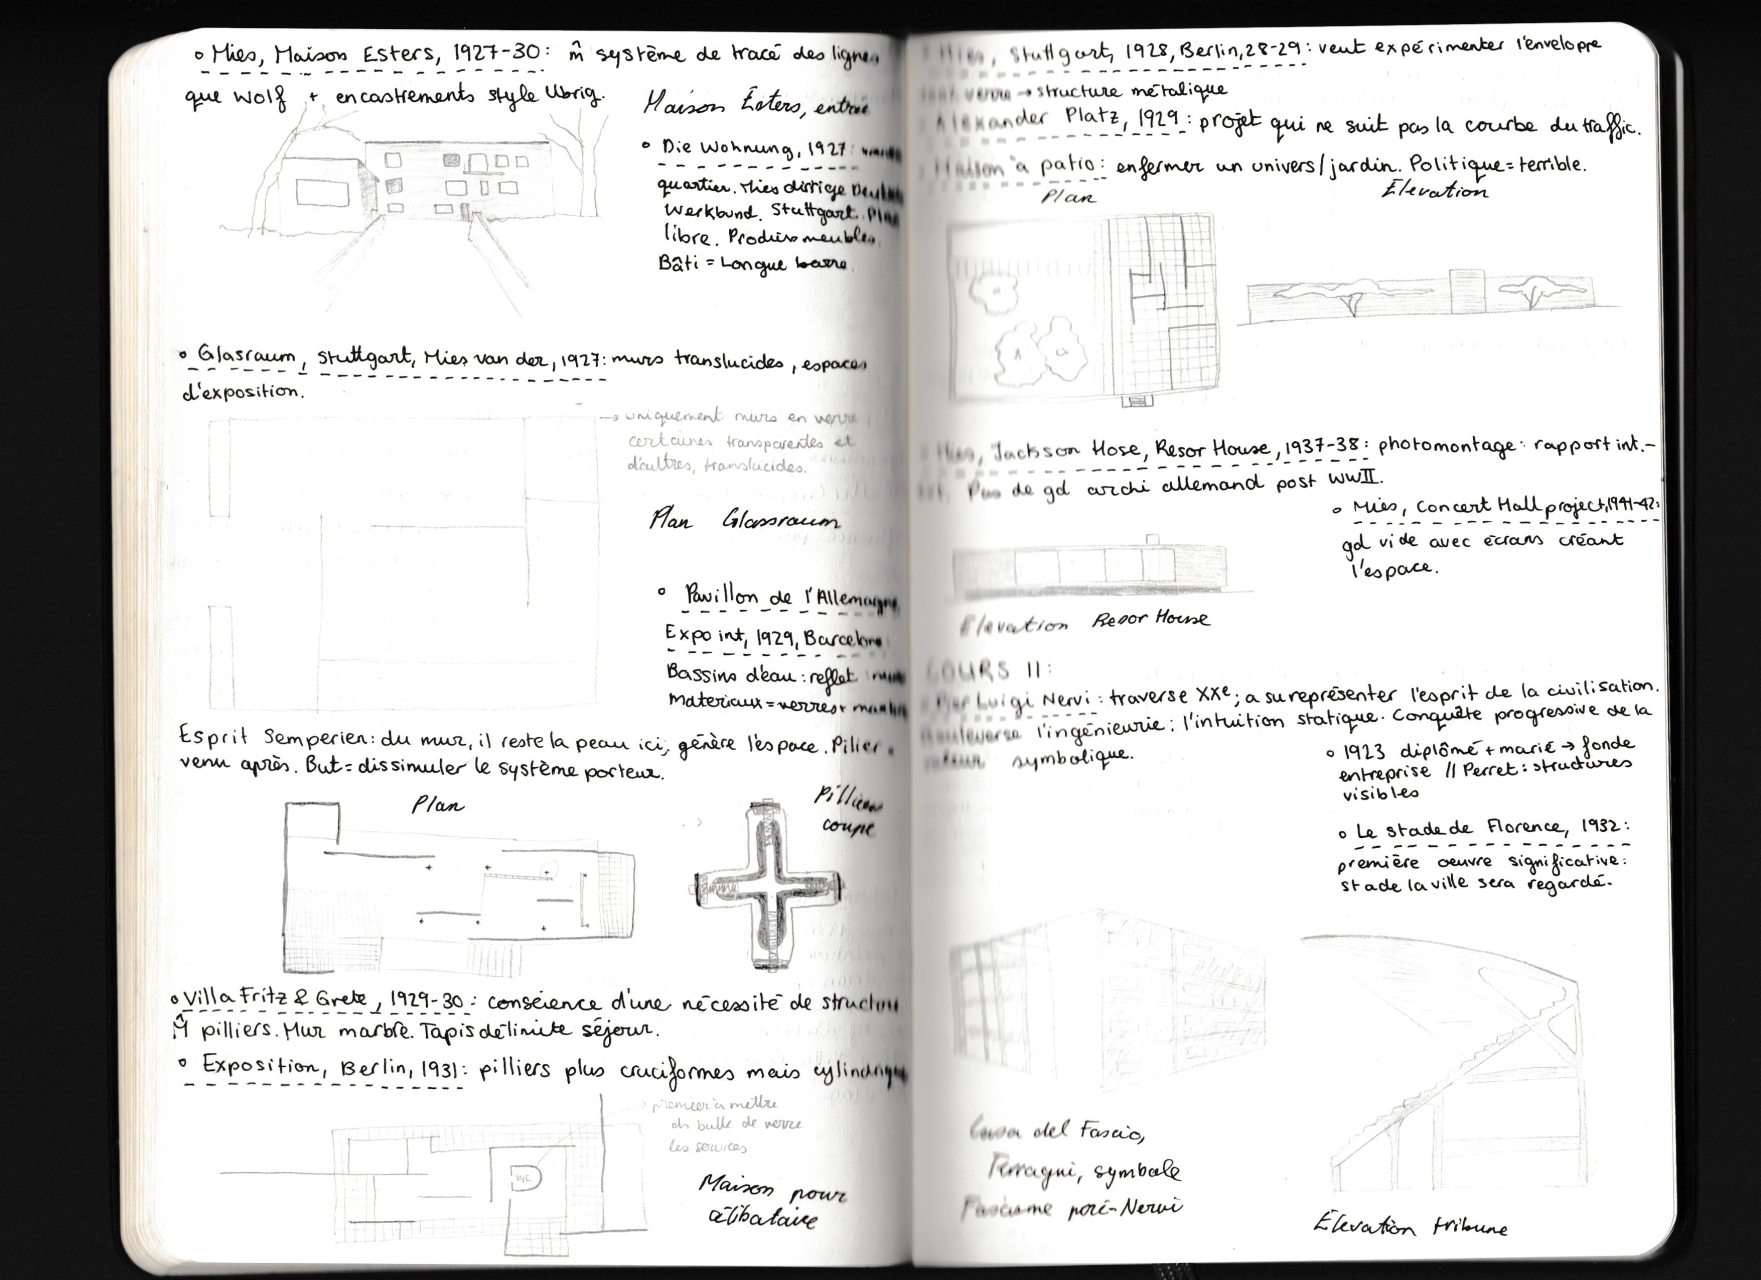 Mies, Maison Esters, 1927-30: m̂ système de tracé des lignes
que Wolf + encastrements style Ubrig.
Maison Esters, entrée
Die Wohnung, 1927:
quartier. Mies dirige
Werkbund. Stuttgart. Plan
libre. Produirs meubles.
Bâti = Longue barre.
Glasraum, Stuttgart, Mies van der, 1927: murs translucides, espaces
d'exposition.
→ uniquement murs en verre
certaines transparentes et
d'autres, translucides.
Plan Glassraum
Pavillon de l'Allemagne,
Expo int, 1929, Barcelone
Bassins d'eau: reflet
materiaux = verres +
Esprit Semperien: du mur, il reste la peau ici, génère l'espace. Pilier
venu après. But = dissimuler le système porteur.
Plan
Pilliers
coupe
Villa Fritz & Grete, 1929-30: conscience d'une nécessité de structure
M̂ pilliers. Mur marbre. Tapis délimite séjour.
Exposition, Berlin, 1931: pilliers plus cruciformes mais cylindriques
→ premier à mettre
ds bulle de verre
les services
WC
Maison pour
célibataire
Mies, Stuttgart, 1928, Berlin, 28-29: veut expérimenter l'enveloppe
tout verre → structure métalique
Alexander Platz, 1929: projet qui ne suit pas la courbe du traffic.
Maison à patio: enfermer un univers/jardin. Politique = terrible.
Plan
Élevation
Mies, Jackson Hose, Resor House, 1937-38: photomontage: rapport int.-
ext. Pas de gd archi allemand post WWII.
Mies, Concert Hall project, 1941-42:
gd vide avec écrans créant
l'espace.
Elevation Resor House
COURS 11:
Pier Luigi Nervi: traverse XXe; a su représenter l'esprit de la civilisation.
Bouleverse l'ingénieurie: l'intuition statique. Conquête progressive de la
valeur symbolique.
1923 diplômé + marié → fonde
entreprise // Perret: structures
visibles
Le stade de Florence, 1932:
première oeuvre significative:
stade la ville sera regardé.
Casa del Fascio,
Terragni, symbole
Fascisme poré-Nervi
Élevation tribune